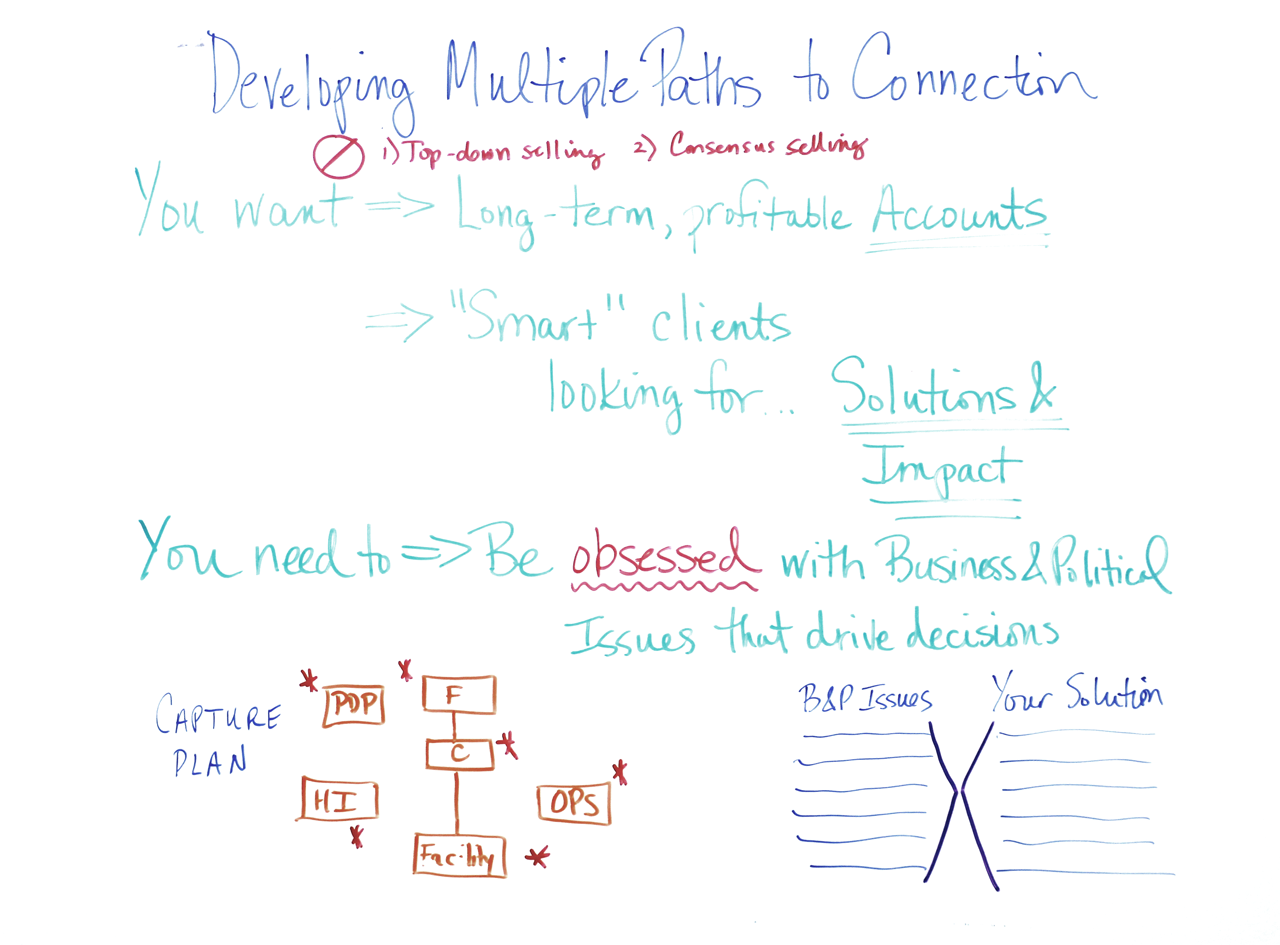 Developing Multiple Paths to Connection
1) Top-down selling 2) Consensus selling
You want => Long-term, profitable Accounts
=> "Smart" clients
looking for... Solutions &
Impact
You need to => Be obsessed with Business & Political
Issues that drive decisions
CAPTURE
PLAN
* PDP
* F
C *
HI *
OPS *
Facility *
B&P Issues
Your Solution